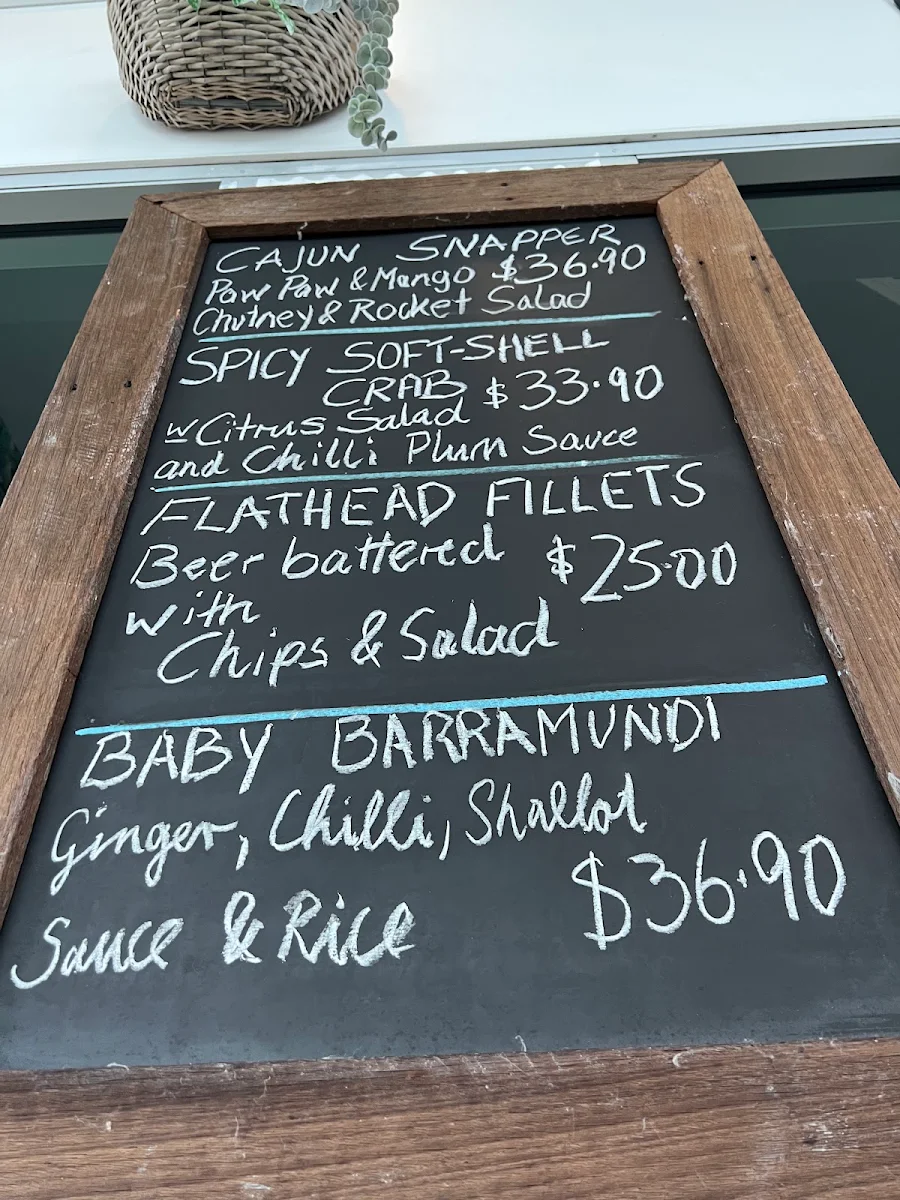 CAJUN SNAPPER
Paw Paw & Mango $36.90
Chutney & Rocket Salad
SPICY SOFT-SHELL
CRAB $33.90
w Citrus Salad
and Chilli Plum Sauce
FLATHEAD FILLETS
Beer battered $25.00
with
Chips & Salad
BABY BARRAMUNDI
Ginger, Chilli, Shallot
Sauce & Rice $36.90